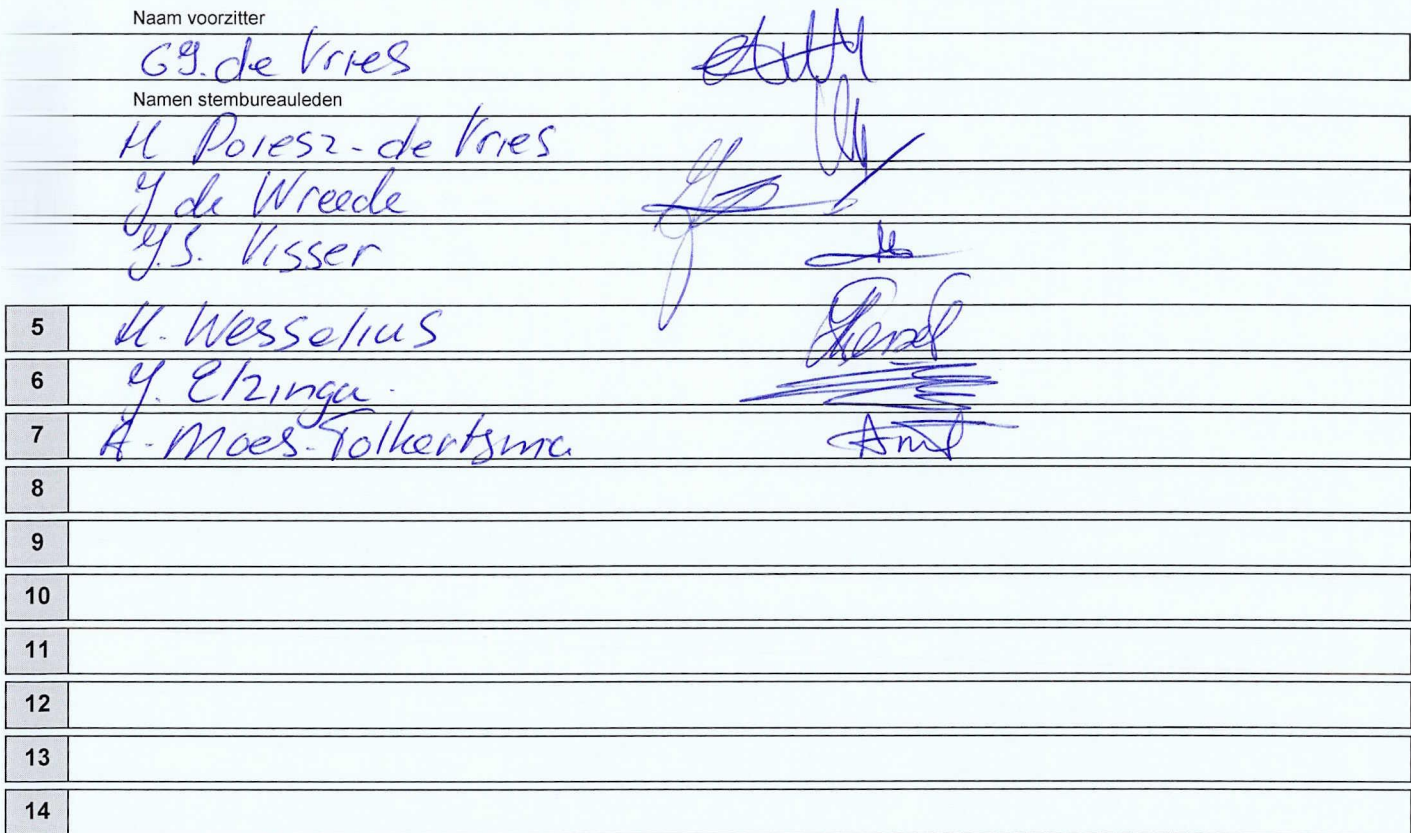 Naam voorzitter
GJ. de Vries
Namen stembureauleden
H Poiesz-de Vries
J de Wreede
J.S. Visser
5 H. Wesselius
6 J. Elzinga
7 A. Moes-Tolkertsma
8
9
10
11
12
13
14